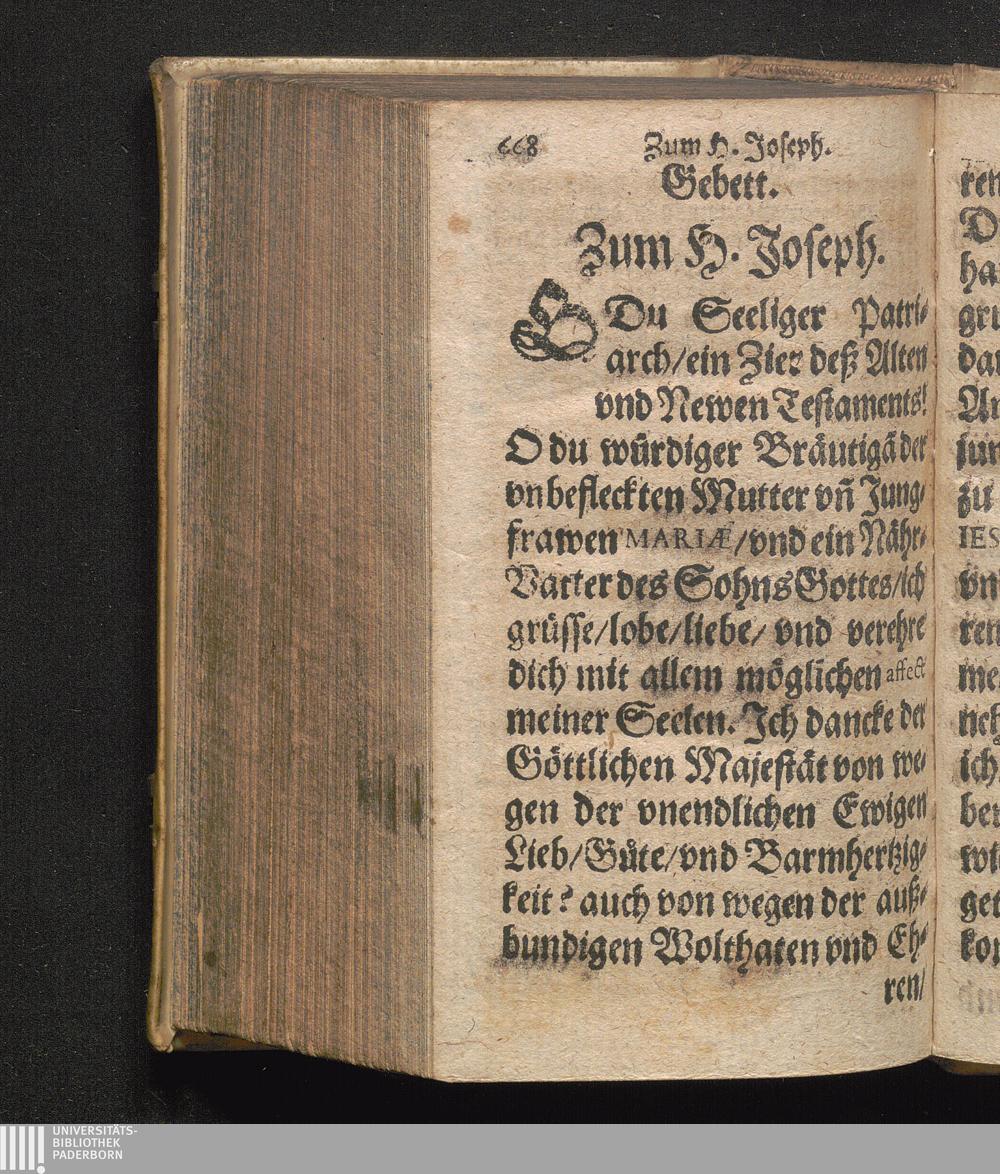 668 Zum H. Joseph.
Gebett.
Zum H. Joseph.
O Du Seeliger Patri-
arch/ein Zier deß Alten
vnd Newen Testaments!
O du würdiger Bräutigā der
vnbefleckten Mutter vñ Jung-
frawen MARIÆ/vnd ein Nähr-
Vatter des Sohns Gottes/ich
grüsse/lobe/liebe/ vnd verehre
dich mit allem möglichen affect
meiner Seelen. Ich dancke der
Göttlichen Majestät von we-
gen der vnendlichen Ewigen
Lieb/Güte/vnd Barmhertzig-
keit? auch von wegen der auß-
bundigen Wolthaten vnd Eh-
ren/
ren
D
ha
gru
dar
An
sun
zu
IES
vn
ren
me
ich
ber
wi
get
kon
UNIVERSITÄTS-
BIBLIOTHEK
PADERBORN